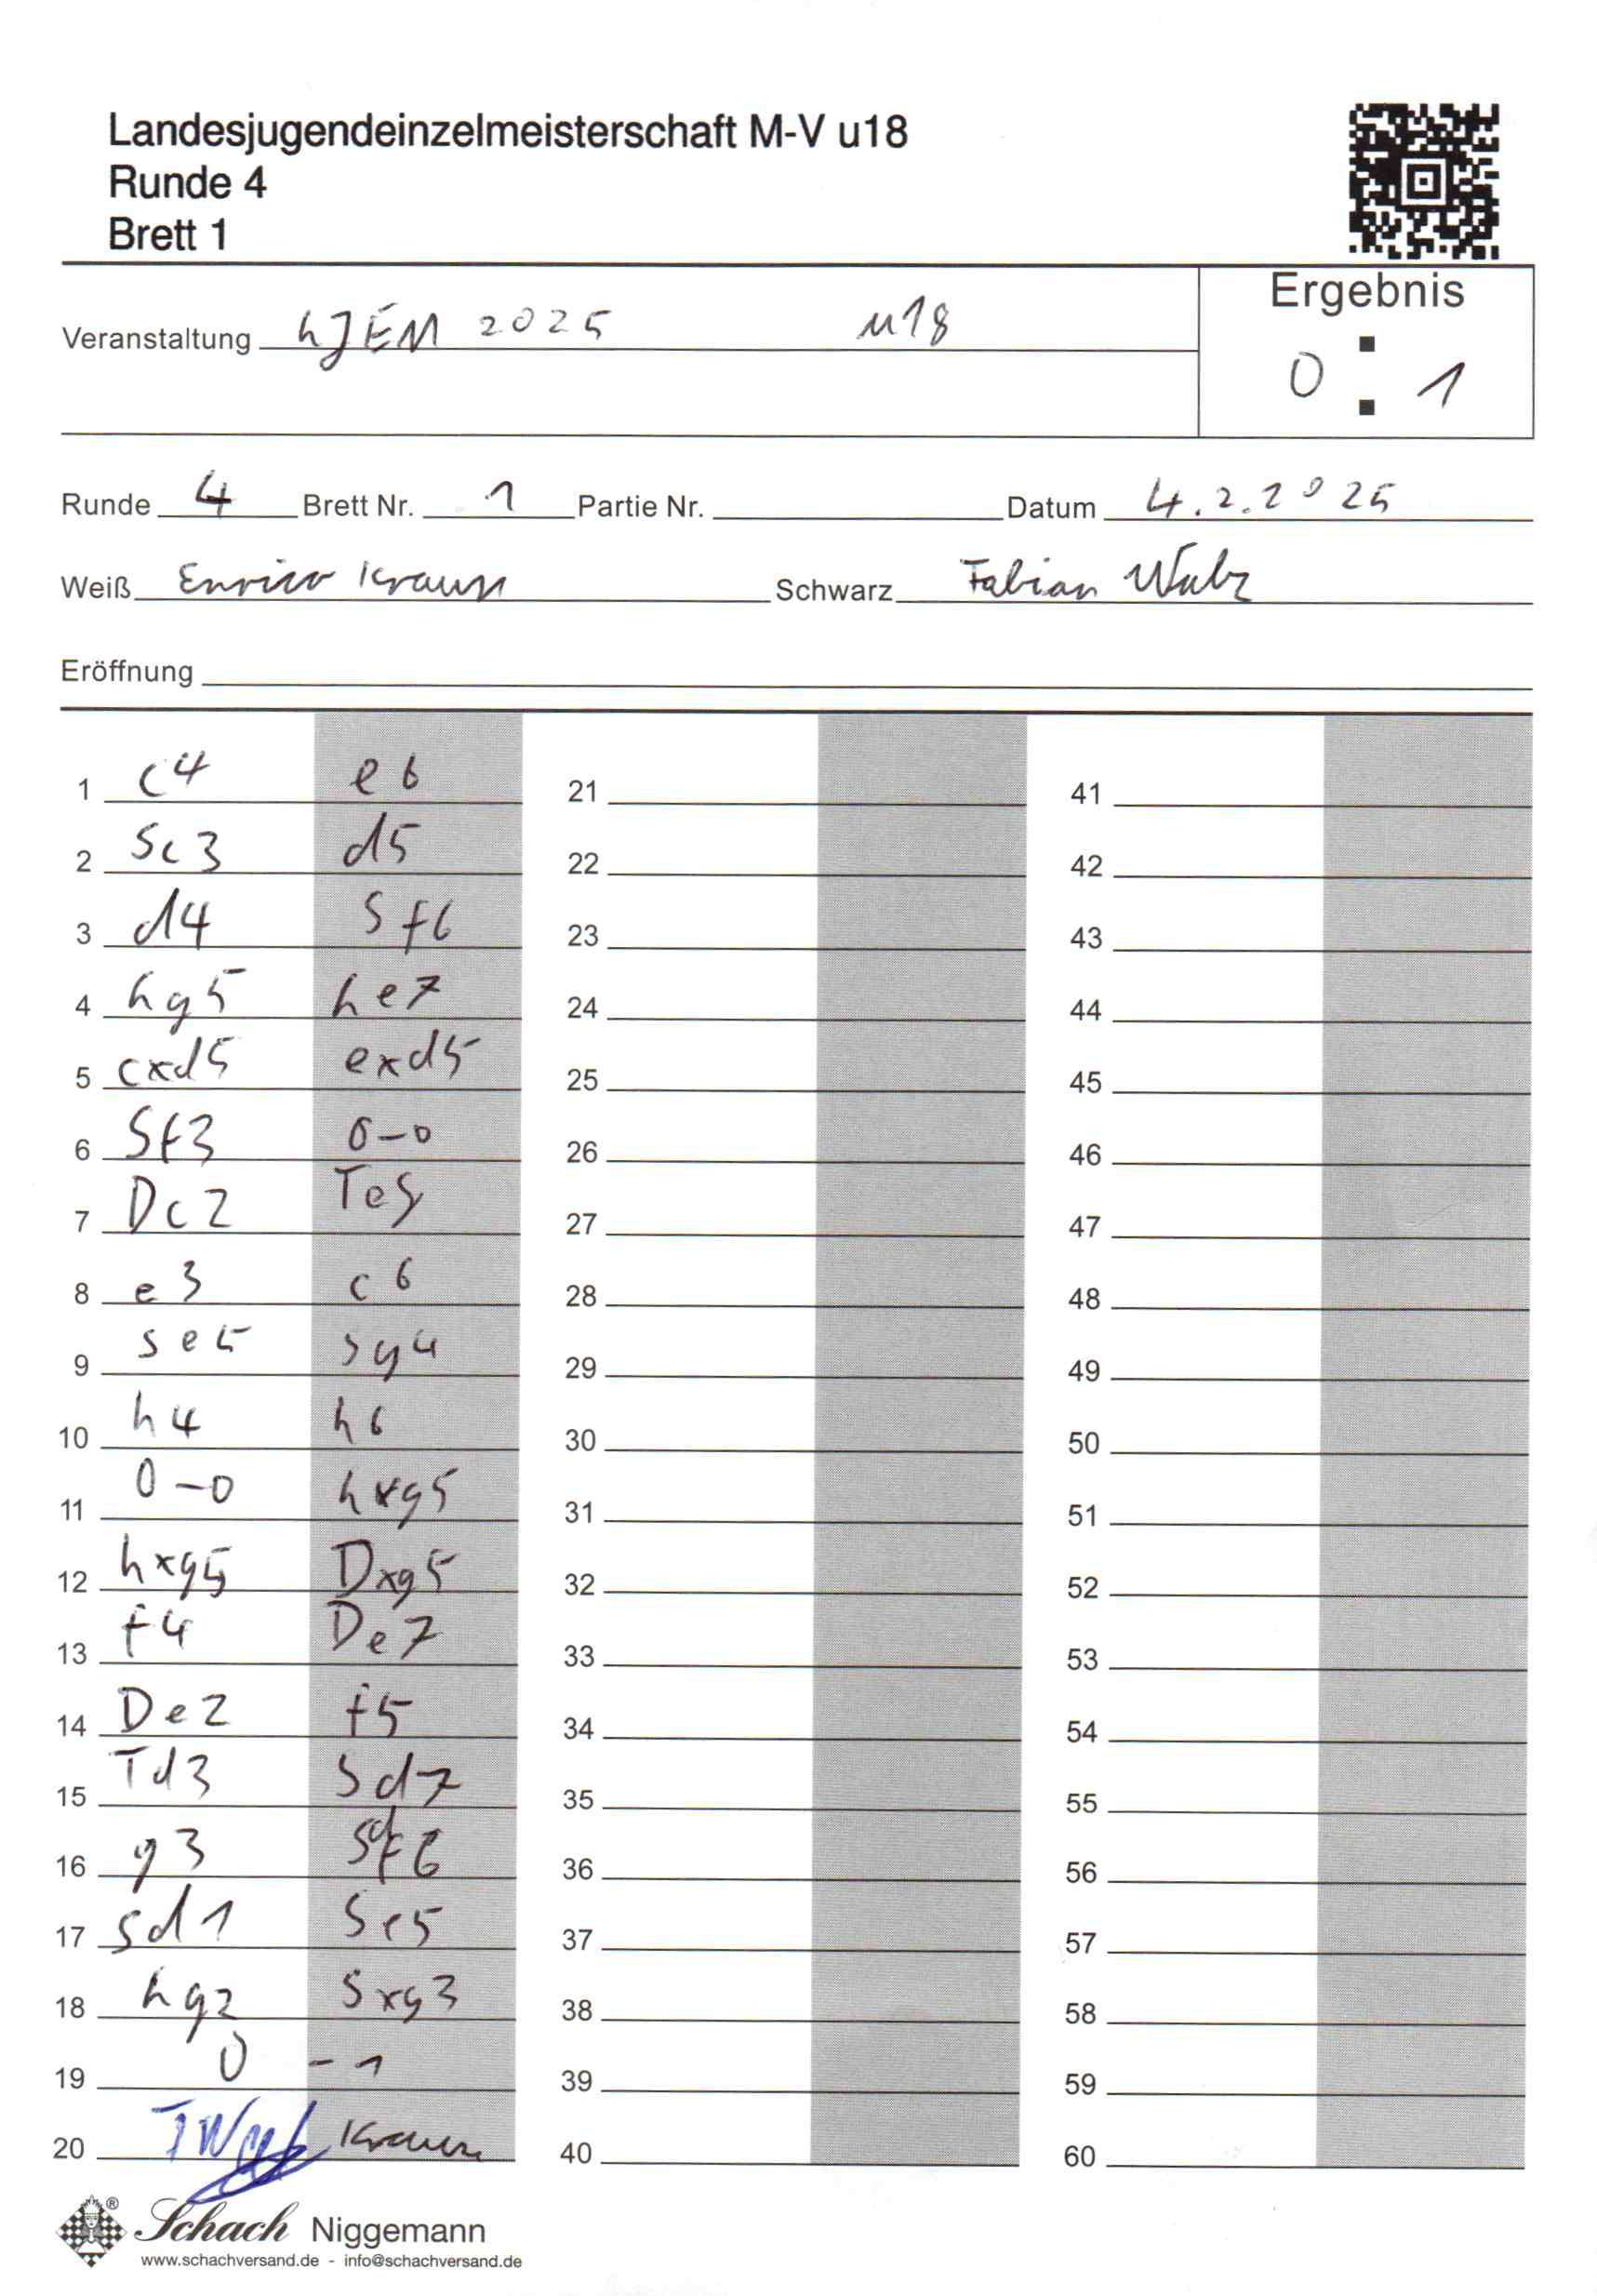 Landesjugendeinzelmeisterschaft M-V u18
Runde 4
Brett 1
Ergebnis
Veranstaltung LJEM 2025 u18
0 : 1
Runde 4 Brett Nr. 1 Partie Nr. Datum 4.2.2025
Weiß Enrico Kraus Schwarz Fabian
Eröffnung
1 c4 e6 21 41
2 Sc3 d5 22 42
3 d4 Sf6 23 43
4 Lg5 Le7 24 44
5 cxd5 exd5 25 45
6 Sf3 0-0 26 46
7 Dc2 Te8 27 47
8 e3 c6 28 48
9 Se5 Sg4 29 49
10 h4 h6 30 50
11 0-0 hxg5 31 51
12 hxg5 Dxg5 32 52
13 f4 De7 33 53
14 De2 f5 34 54
15 Td3 Sd7 35 55
16 g3 Sdf6 36 56
17 Sd1 Se5 37 57
18 Lg2 Sxg3 38 58
19 0 - 1 39 59
20 Kraus 40 60
Schach Niggemann
www.schachversand.de - info@schachversand.de